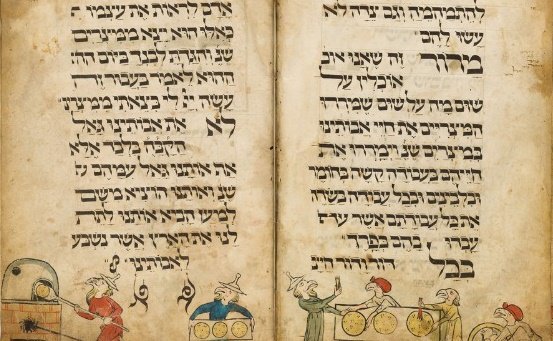 להתמהמה וגם צדה לא
עשו להם
מרור זה שאנו או
אוכלין על
שום מה על שום שמררו
המצריים את חיי אבותינו
במצרים שנ׳ וימררו את
חייהם בעבודה קשה בחומר
ובלבנים ובכל עבודה בשדה
את כל עבודתם אשר
עבדו בהם בפרך
בכל דור ודור חייב
אדם לראות את עצמו
כאלו הוא יצא ממצרים
שנ׳ והגדת לבנך ביום הה
ההוא לאמר בעבור זה
עשה יי לי בצאתי ממצרים
לא את אבותינו גאל
הקבה בלבד אלא
אף אותנו גאל עמהם
שנ׳ ואותנו הוציא משם
למען הביא אותנו לתת
לנו את הארץ אשר נשבע
לאבותינו